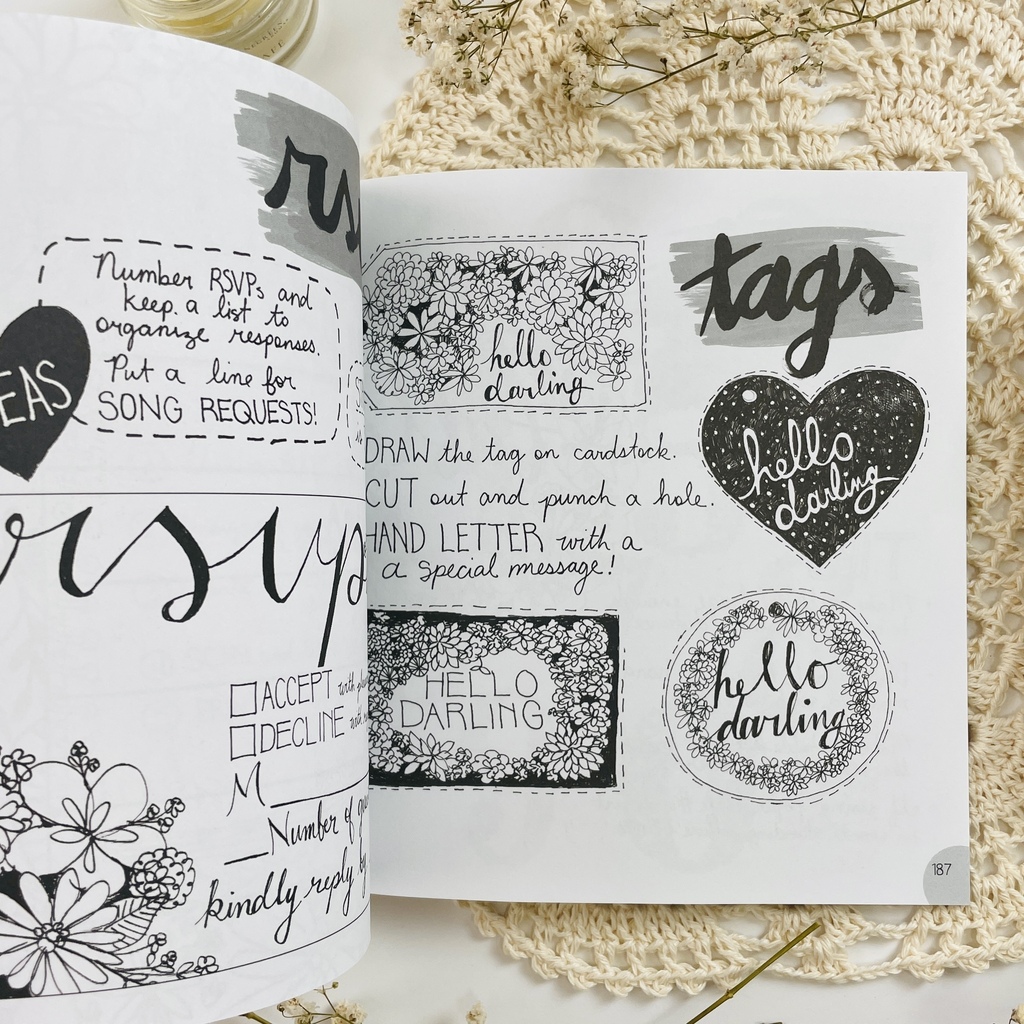 Number RSVPs and
keep a list to
organize responses.
Put a line for
SONG REQUESTS!
rsvp
ACCEPT with
DECLINE with
M
Number of
kindly reply by
tags
hello
darling
hello
darling
DRAW the tag on cardstock.
CUT out and punch a hole.
HAND LETTER with a
a special message!
HELLO
DARLING
hello
darling
187